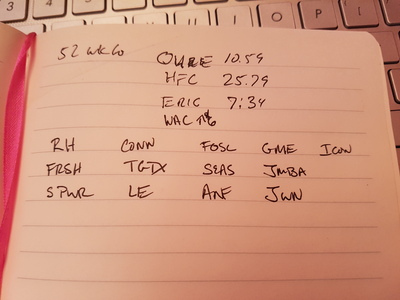 52 wk Lo
OUBE 10.59
HFC 25.79
ERIC 7:34
WAC
RH CONN FOSL GME ICON
FRSH TGTX SEAS JMBA
SPWR LE ANF JWN